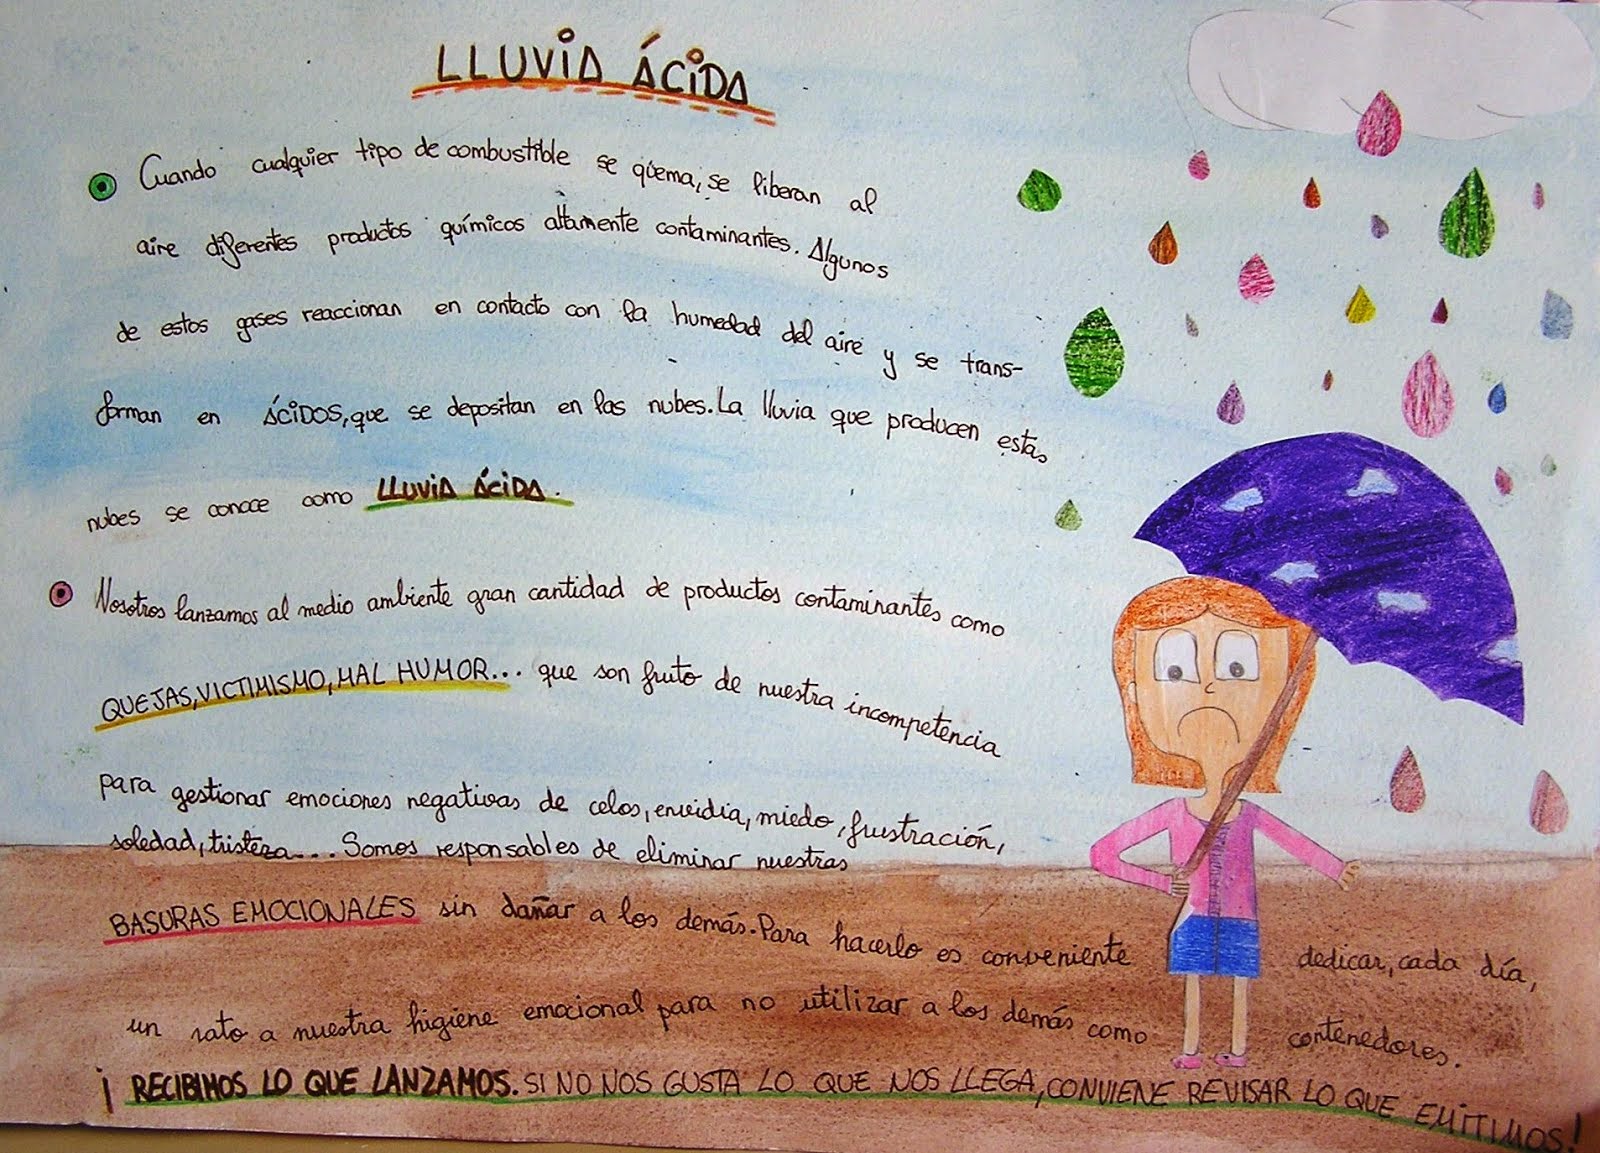 LLUVIA ÁCIDA
Cuando cualquier tipo de combustible se qüema, se liberan al
aire diferentes productos químicos altamente contaminantes. Algunos
de estos gases reaccionan en contacto con la humedad del aire y se trans-
forman en ÁCIDOS, que se depositan en las nubes. La lluvia que producen estas
nubes se conoce como LLUVIA ÁCIDA.
Nosotros lanzamos al medio ambiente gran cantidad de productos contaminantes como
QUEJAS, VICTIMISMO, MAL HUMOR... que son fruto de nuestra incompetencia
para gestionar emociones negativas de celos, envidia, miedo, frustración,
soledad, tristeza... Somos responsables de eliminar nuestras
BASURAS EMOCIONALES sin dañar a los demás. Para hacerlo es conveniente dedicar, cada día,
un rato a nuestra higiene emocional para no utilizar a los demás como contenedores.
¡RECIBIMOS LO QUE LANZAMOS. SI NO NOS GUSTA LO QUE NOS LLEGA, CONVIENE REVISAR LO QUE EMITIMOS!